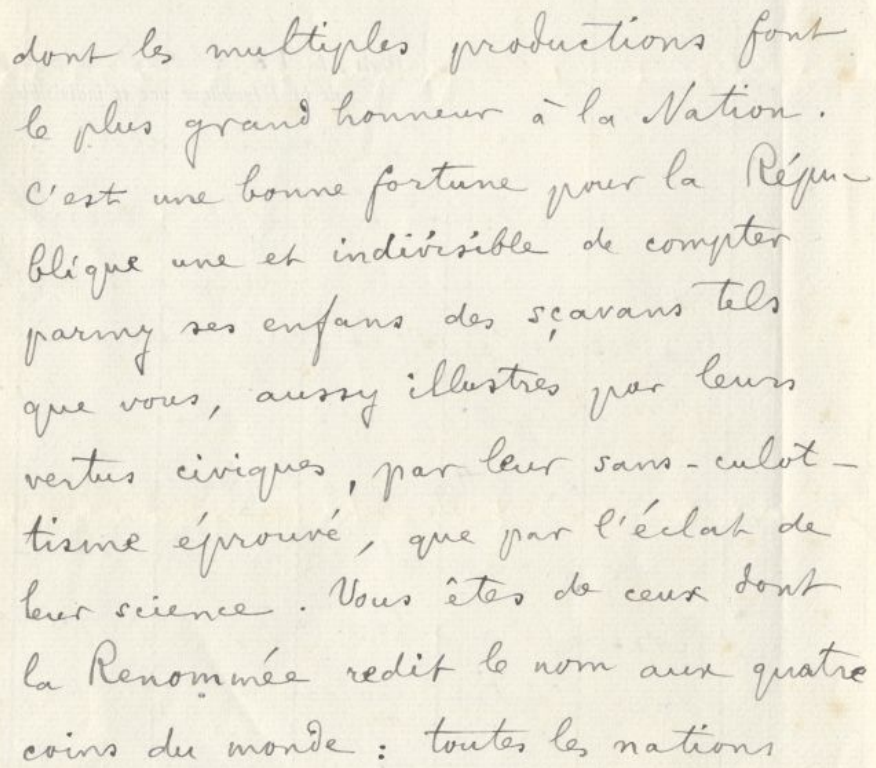 dont les multiples productions font
le plus grand honneur à la Nation.
C'est une bonne fortune pour la Répu-
blique une et indivisible de compter
parmy ses enfans des sçavans tels
que vous, aussy illustres par leurs
vertus civiques, par leur sans-culot-
tisme éprouvé, que par l'éclat de
leur science. Vous êtes de ceux dont
la Renommée redit le nom aux quatre
coins du monde : toutes les nations